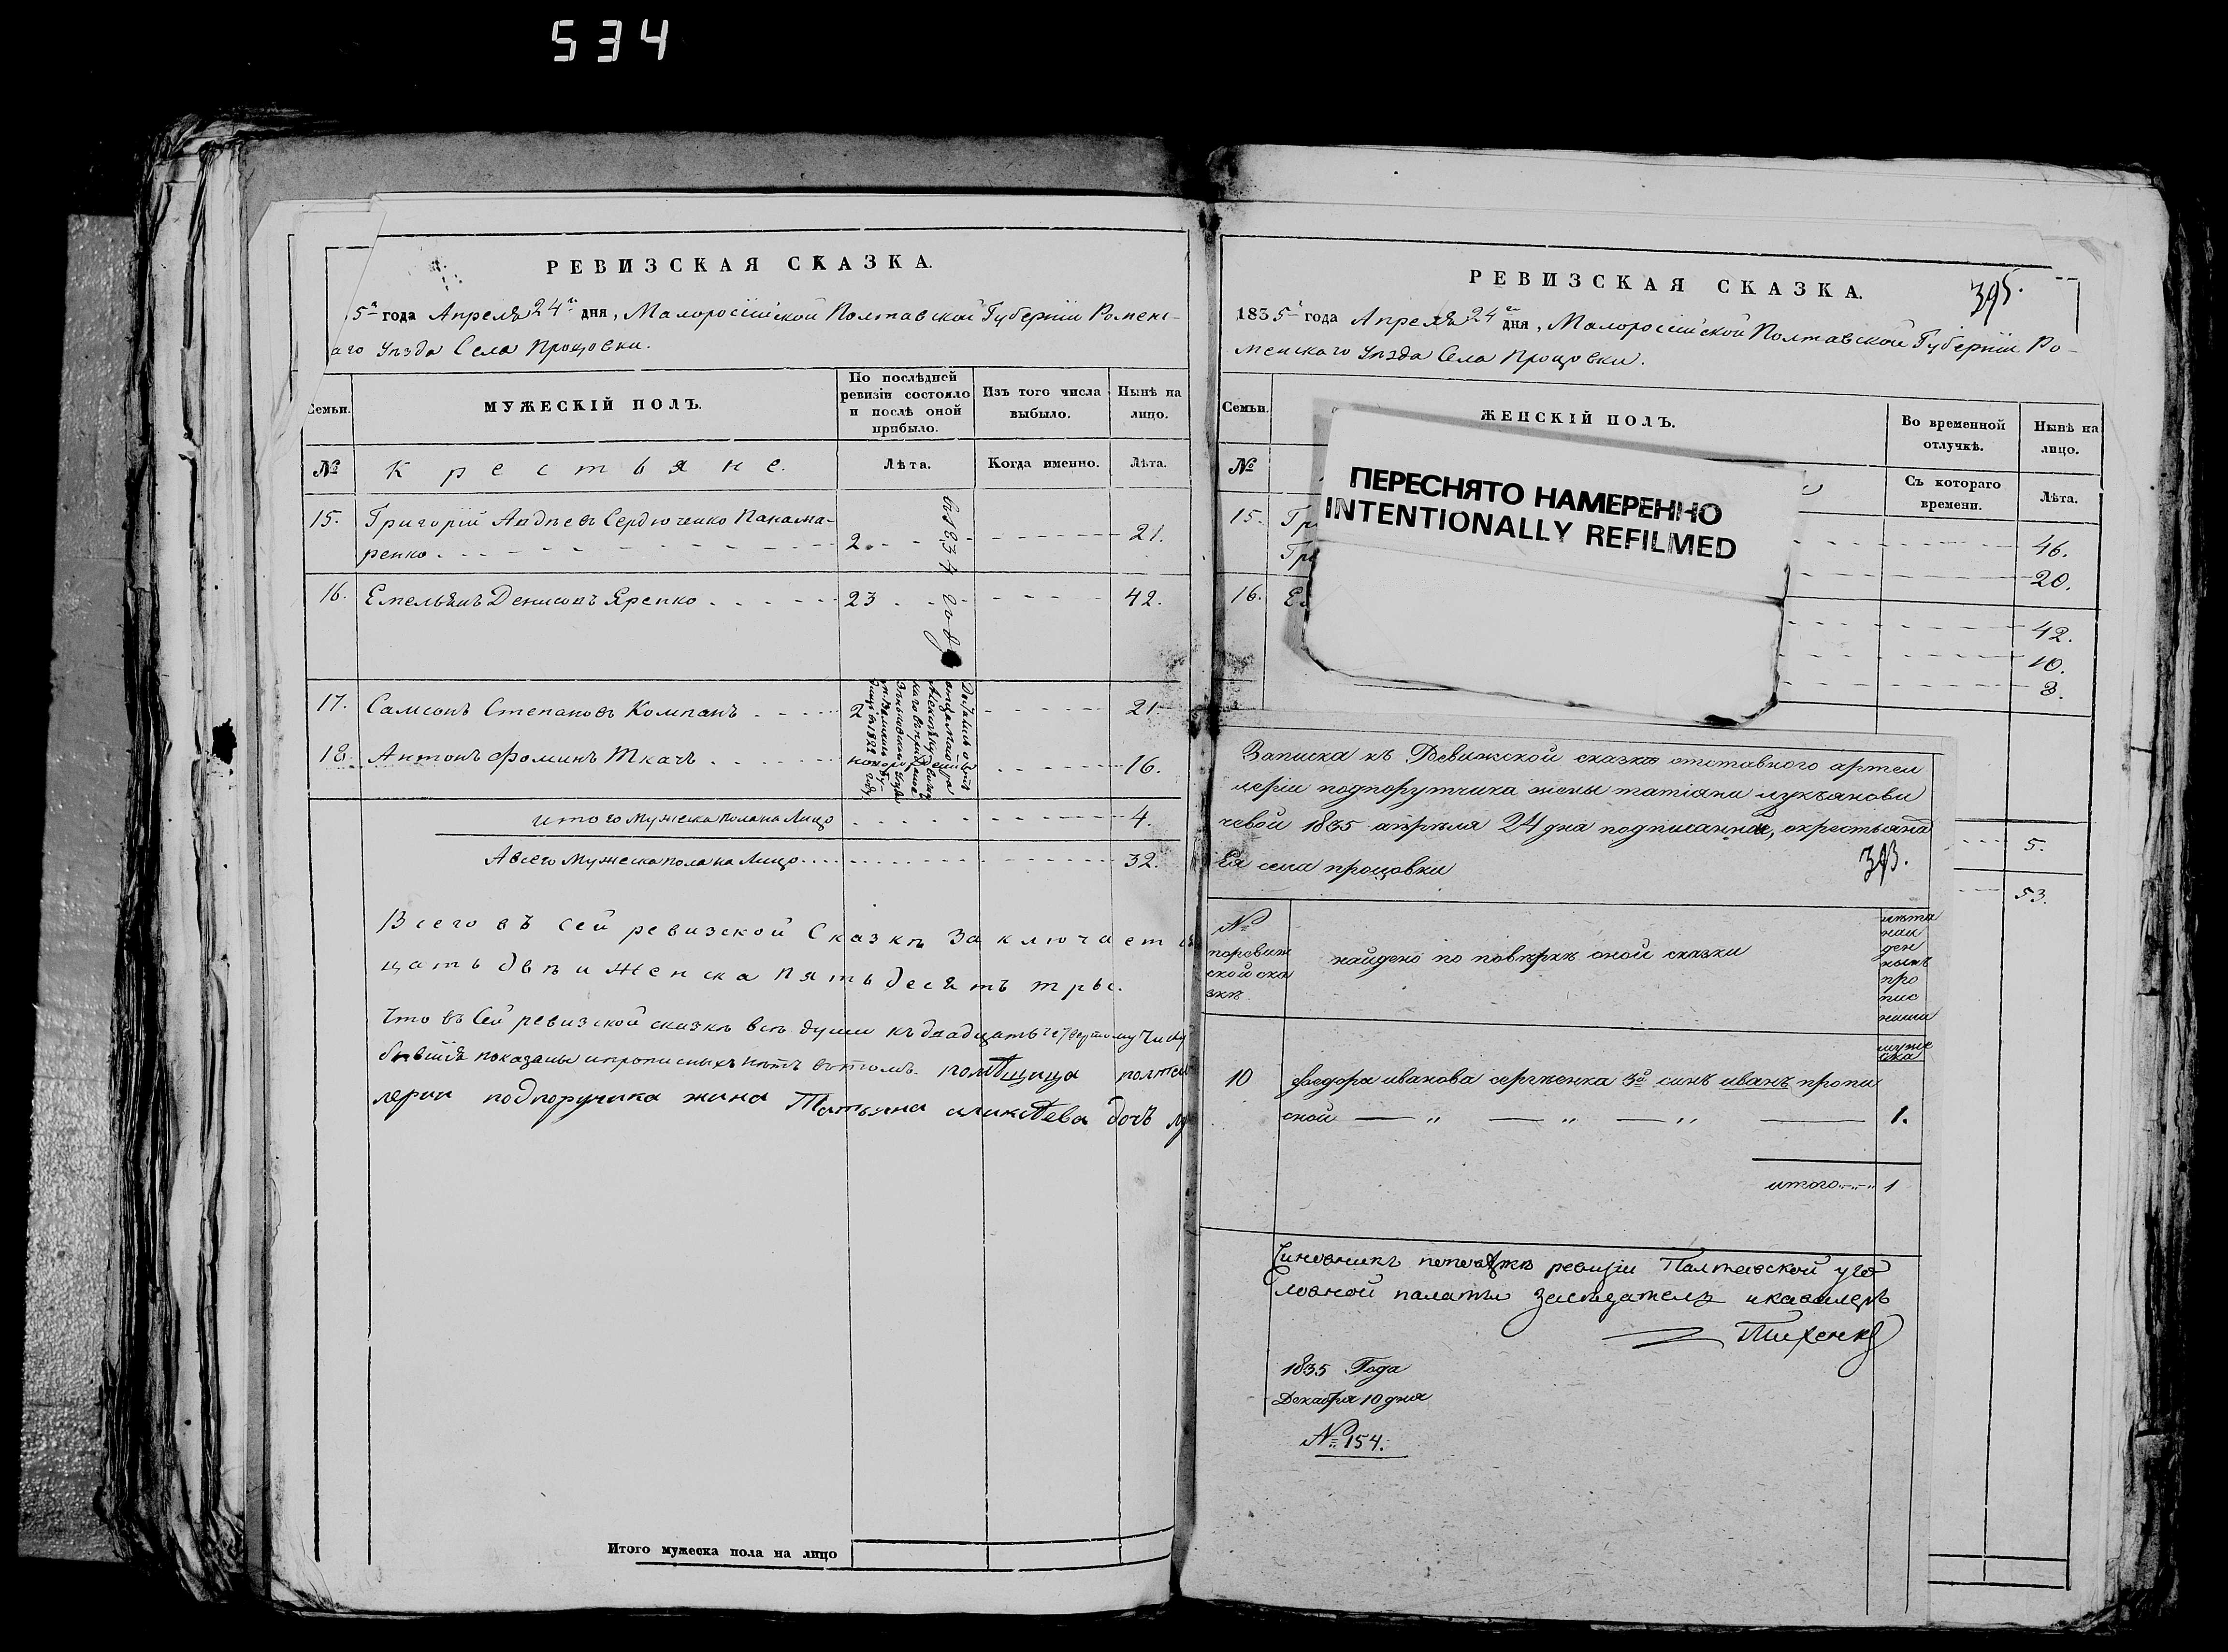 534
РЕВИЗСКАЯ СКАЗКА.
5 года Апреля 24 дня, Малоросійской Полтавской Губерніи Роменс-
аго Уѣзда Села Процовки.
Семьи.
МУЖЕСКІЙ ПОЛЪ.
По послѣдней ревизіи состояло и послѣ оной прибыло.
Изъ того числа выбыло.
Нынѣ на лицо.
№
Крестьяне.
Лѣта.
Когда именно.
Лѣта.
15. Григорій Авдѣевъ Сердюченко Панама-
ренко 2. 21.
в 1834 году
16. Емельянъ Денисовъ Яренко 23 42.
17. Самсонъ Степановъ Компанъ 2 21
18. Антонъ Фоминъ Ткачъ 16.
итого мужеска пола на Лицо 4.
А всего Мужеска пола на Лицо 32.
Всего въ сей ревизской Сказкѣ Заключаетс
цать двѣ и Женска пятьдесятъ три.
Что въ Сей ревизской сказкѣ всѣ души къ двадцать четвертому числу
показаны и прописныхъ нѣтъ въ томъ.
лерии подпоручика жина Татьяна дочь
Итого мужеска пола на лицо
РЕВИЗСКАЯ СКАЗКА.
395.
1835 года Апреля 24 дня, Малоросійской Полтавской Губерніи Ро-
менскаго Уѣзда Села Процовки.
Семьи.
ЖЕНСКІЙ ПОЛЪ.
Во временной отлучкѣ.
Нынѣ на лицо.
№
Съ котораго времени.
Лѣта.
ПЕРЕСНЯТО НАМЕРЕННО
INTENTIONALLY REFILMED
15. Гр 46.
Гр 20.
16. Е 42.
10.
8.
5.
53.
Записка къ Ревижской сказке отставного артел
лерiи подпорутчика жены татіяни лукъянови
чевой 1835 апрѣля 24 дня подписанной, окрестьяна
Ея села процовки
393.
№
поревиж
ской ска
зкѣ
найдено по повѣркѣ оной сказки
лѣта
най
ден
нымъ
про
пис
нимъ
муже
ска
10 федора иванова сергѣенка 3й синъ иванъ пропи
сной 1.
итого 1
Чиновникъ поповѣркѣ ревизіи Палтавской уго
ловной палаты Заседатель икавалеръ
1835 Года
Декабря 10 дня
№ 154.